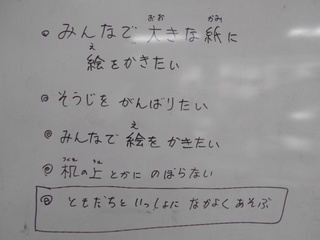 ◎ みんなで大きな紙に
絵をかきたい
◎ そうじをがんばりたい
◎ みんなで絵をかきたい
◎ 机の上とかにのぼらない
◎ ともだちといっしょになかよくあそぶ